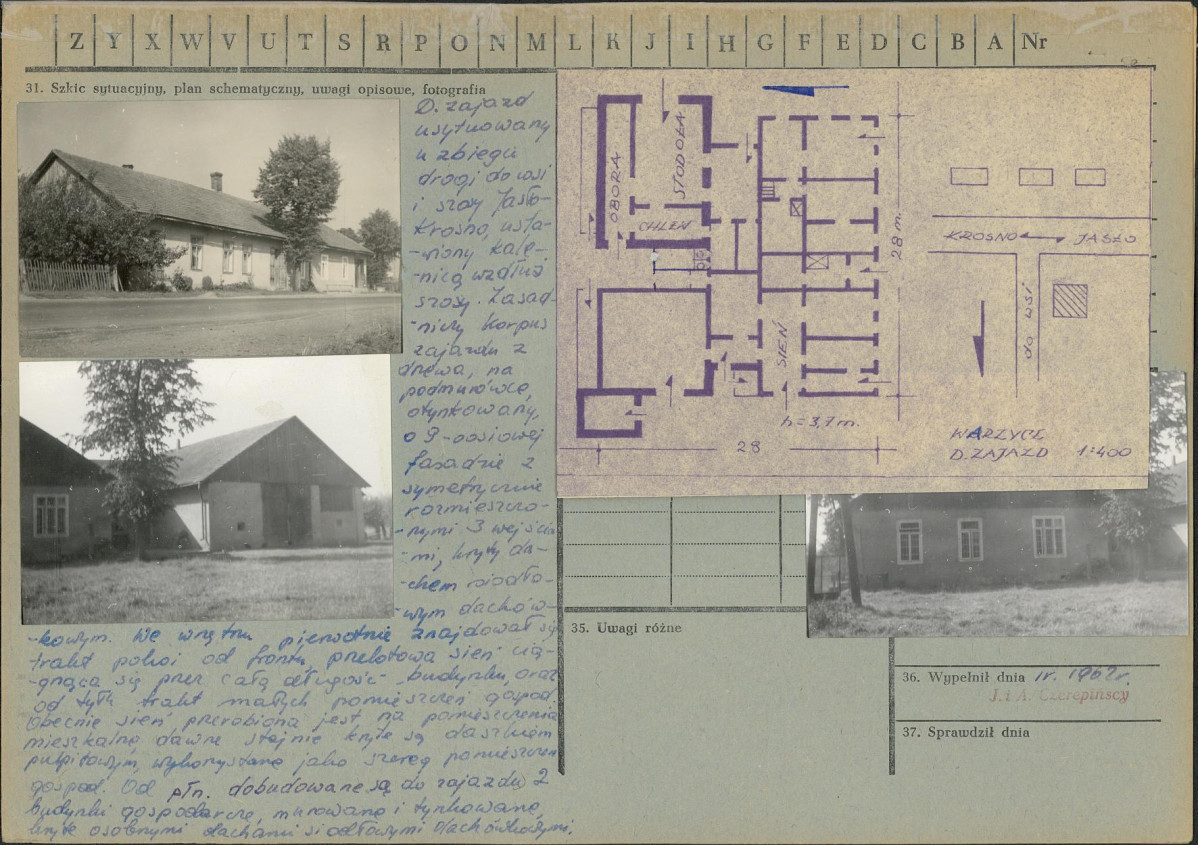 Z Y X W V U T S R P O N M L K J I H G F E D C B A Nr
31. Szkic sytuacyjny, plan schematyczny, uwagi opisowe, fotografia
D. zajazd
usytuowany
u zbiegu
drogi do wsi
i szosy Jasło-
Krosno, usta-
-wiony kale-
-nicą wzdłuż
szosy. Zasad-
-niczy korpus
zajazdu z
drewna, na
podmurówce,
otynkowany,
o 9-osiowej
fasadzie z
symetrycznie
rozmieszczo-
-nymi 3 wejścia-
-mi, kryty da-
-chem siodło-
-wym dachów-
-kowym. We wnętrzu pierwotnie znajdował się
trakt pokoi od frontu, przelotowa sień cią-
-gnąca się przez całą długość budynku, oraz
od tyłu trakt małych pomieszczeń gospod.
Obecnie sień przerobiona jest na pomieszczenia
mieszkalne, dawne stajnie kryte są daszkiem
pulpitowym, wykorzystane jako szereg pomieszczeń
gospod. Od płn. dobudowane są do zajazdu 2
budynki gospodarcze, murowane i tynkowane,
kryte osobnymi dachami siodłowymi dachówkowymi.
OBORA
STODOŁA
CHLEW
SIEŃ
28 m.
h=3,7 m.
28
KROSNO JASŁO
do wsi
WARZYCE
D. ZAJAZD 1:400
35. Uwagi różne
36. Wypełnił dnia IV. 1967r.
J. i A. Czerepińscy
37. Sprawdził dnia